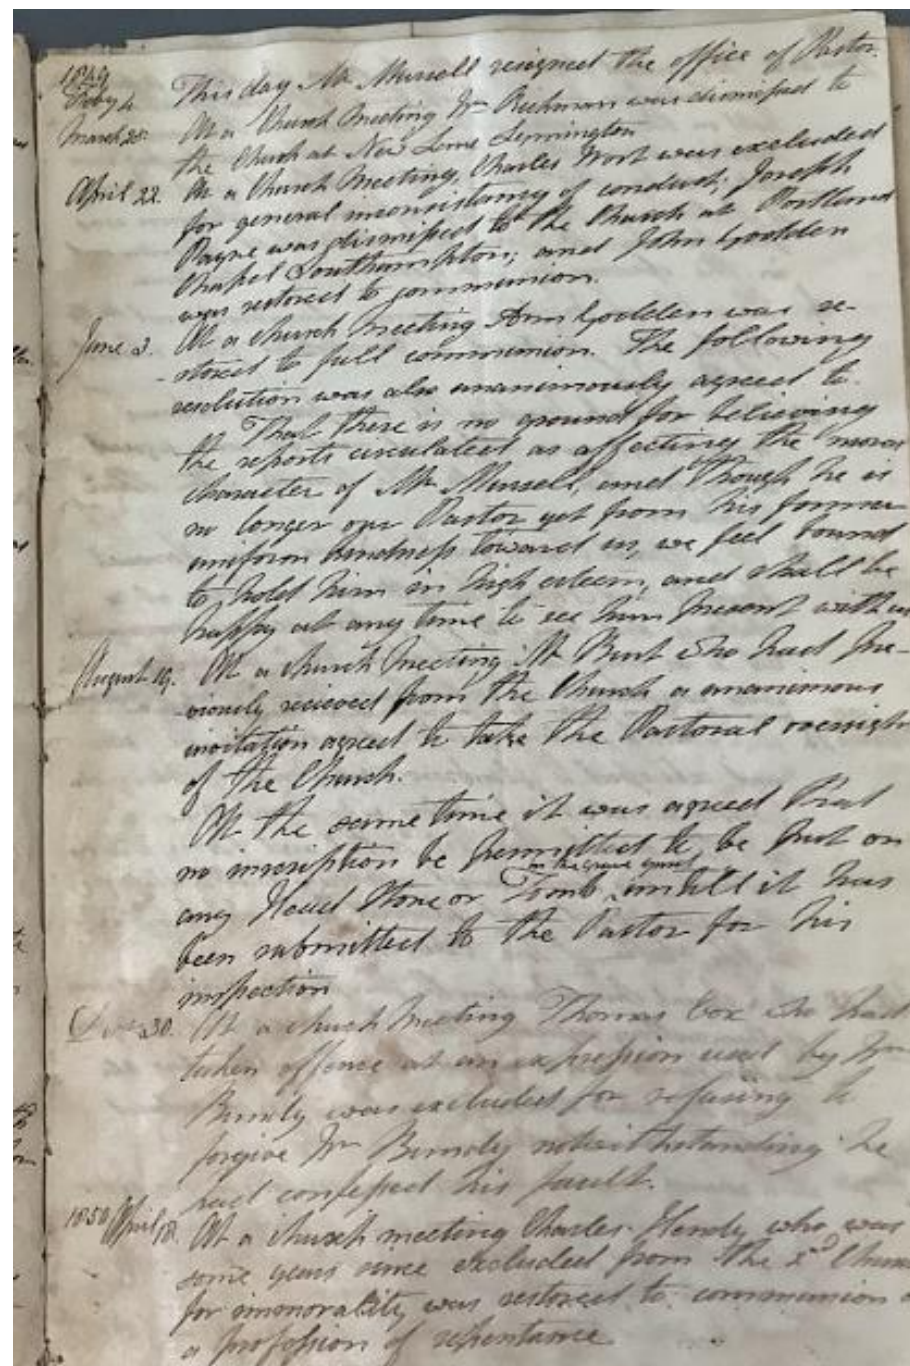 1849
Feby 4. This day Mr Mursell resigned the office of Pastor.
March 25. At a Church Meeting Wm Richman was dismissed to
the Church at New Lane Lymington
April 22. At a Church Meeting, Charles was excluded
for general inconsistancy of conduct; Joseph
Payne was dismissed to the Church at Portland
Chapel Southampton; and John Godden
was restored to communion.
June 3. At a church meeting Ann Godden was re-
-stored to full communion. The following
resolution was also unanimously agreed to.
That there is no ground for believing
the reports circulated as affecting the moral
character of Mr Mursell, and though he is
no longer our Pastor yet from his former
uniform kindness toward us, we feel bound
to hold him in high esteem, and shall be
happy at any time to see him present with us
August 19. At a church meeting Mr Burt who had pre-
-viously recieved from the Church a unanimous
invitation agreed to take the Pastoral oversight
of the Church.
At the same time it was agreed that
no inscription be permitted to be put on
in the grave yard
any Head Stone or Tomb untill it has
been submitted to the Pastor for his
inspection
30. At a church meeting Thomas Cox who had
taken offence at an expression used by Wm
was excluded for refusing to
forgive Wm notwithstanding he
had confessed his fault.
1850 April 18. At a church meeting Charles who was
some years since excluded from the 2nd Church
for immorality was restored to communion
a profession of repentance